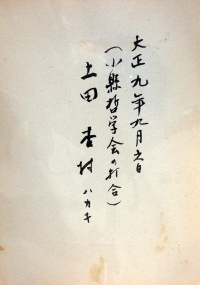 大正九年九月六日
(小縣哲学会の打合)
土田杏村ハカキ